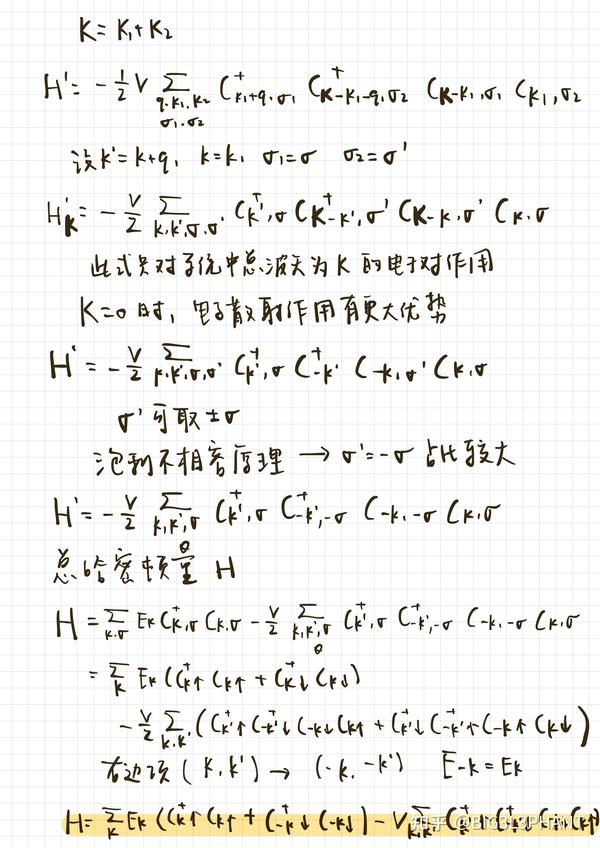 K = K₁ + K₂
H' = -½ V Σ_{q.k₁.k₂ σ₁.σ₂} C⁺_{k₁+q.σ₁} C⁺_{K-k₁-q,σ₂} C_{K-k₁,σ₁} C_{k₁,σ₂}
设 k' = k+q, k=k₁ σ₁=σ σ₂=σ'
H'_K = -V/2 Σ_{k,k',σ,σ'} C⁺_{k',σ} C⁺_{K-k',σ'} C_{K-k,σ'} C_{k,σ}
此式只对系统中总波矢为 K 的电子对作用
K=0 时, 电子散射作用有更大优势
H' = -V/2 Σ_{k,k',σ,σ'} C⁺_{k',σ} C⁺_{-k'} C_{-k,σ'} C_{k,σ}
σ' 可取 ±σ
泡利不相容原理 → σ'=-σ 占比较大
H' = -V/2 Σ_{k,k',σ} C⁺_{k',σ} C⁺_{-k',-σ} C_{-k,-σ} C_{k,σ}
总哈密顿量 H
H = Σ_{k,σ} E_k C⁺_{k,σ} C_{k,σ} - V/2 Σ_{k,k',σ} C⁺_{k',σ} C⁺_{-k',-σ} C_{-k,-σ} C_{k,σ}
= Σ_k E_k (C⁺_{k↑} C_{k↑} + C⁺_{k↓} C_{k↓})
- V/2 Σ_{k,k'} (C⁺_{k'↑} C⁺_{-k'↓} C_{-k↓} C_{k↑} + C⁺_{k'↓} C⁺_{-k'↑} C_{-k↑} C_{k↓})
右边项 (k,k') → (-k,-k') E_{-k} = E_k
H = Σ_k E_k (C⁺_{k↑} C_{k↑} + C⁺_{-k↓} C_{-k↓}) - V Σ_{k,k'} C⁺
知乎 @BIG3L3PHANT